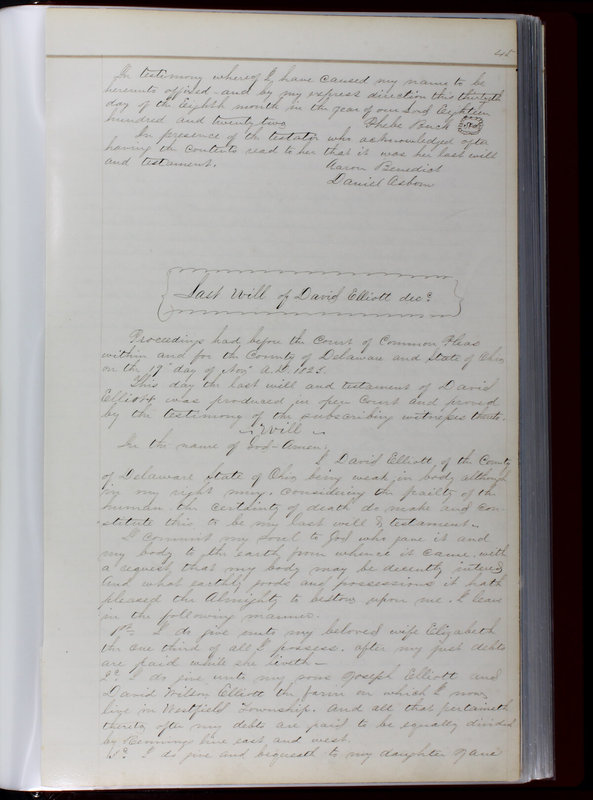 45
In testimony whereof I, have caused my name to be
hereunto affixed - and by my express direction this thirtyth
day of the Eighth month in the year of our Lord Eighteen
hundred and twenty two Phebe Bouck
In presence of the testator who acknowledged after
having the contents read to her that it was her last will
and testament. Aaron Benedict
Daniel Osborn
Last Will of David Elliott decd.
Proceedings had before the Court of Common Pleas
within and for the County of Delaware and State of Ohio
on the 19th day of Novr A.D. 1823.
This day the last will and testament of David
Elliott was produced in open Court and proved
by the testimony of the subscribing witnesses thereto.
Will
In the name of God - Amen.
I David Elliott, of the County
of Delaware State of Ohio being weak in body although
in my right mind, considering the frailty of the
human the certainty of death do make and con-
stitute this to be my last will & testament.
I commit my soul to God who gave it and
my body to the earth from whence it came with
a request that my body may be decently intered
And what earthly goods and possessions it hath
pleased the Almighty to bestow upon me. I leave
in the following manner.
1st I do give unto my beloved wife Elizabeth
the one third of all I possess. after my just debts
are paid while she liveth -
2d I do give unto my sons Joseph Elliott and
David Wilson Elliott the farm on which I now
live in Westfield Township. and all that pertaineth
thereto after my debts are paid to be equally divided
by Running line east and west.
3d I do give and bequeath to my daughter Jane